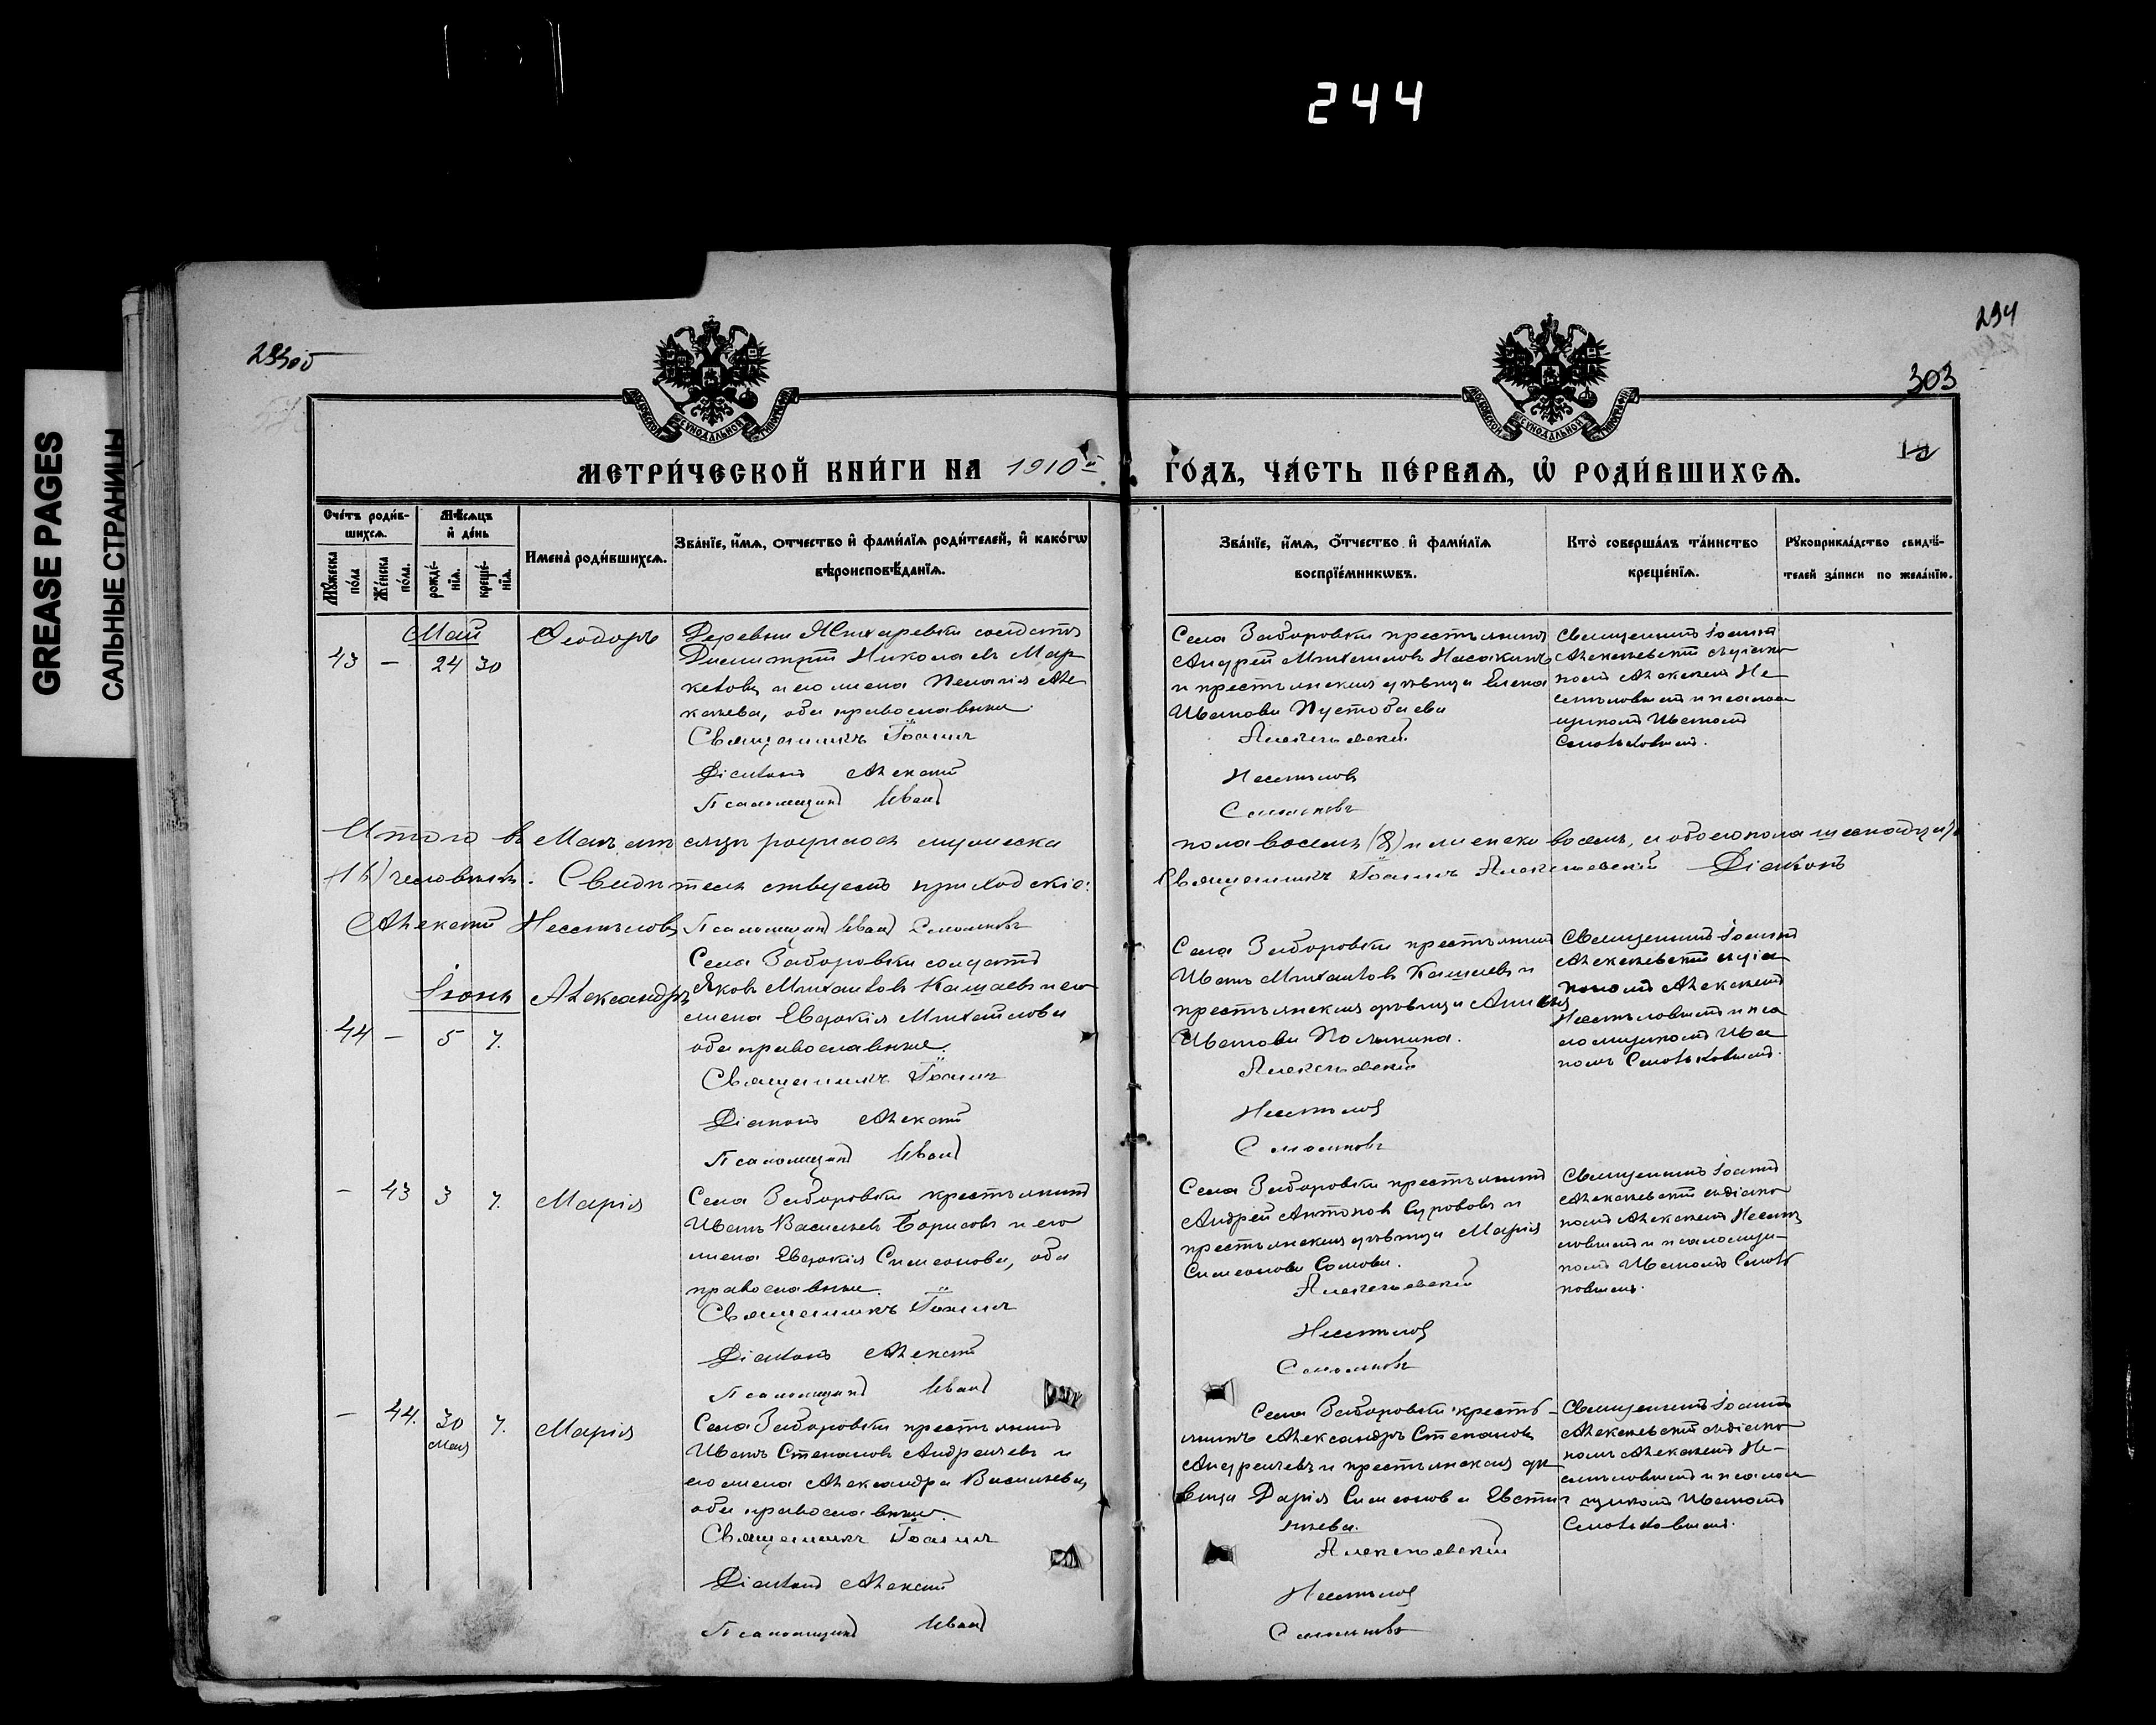 244
GREASE PAGES
САЛЬНЫЕ СТРАНИЦЫ
293об
294
303
МЕТРИ́ЧЕСКОЙ КНИ́ГИ НА 1910й ГО́ДЪ, ЧА́СТЬ ПЕ́РВАѦ, Ѡ҆ РОДИ́ВШИХСѦ.
Сче́тъ роди́в-
шихсѧ.
Мѹ́жеска по́ла
Же́нска по́ла.
Мѣ́сѧцъ
и҆ де́нь
рожде́нїѧ.
креще́нїѧ.
Имена̀ роди́вшихсѧ.
Зва́нїе, и҆́мѧ, ѻ҆́тчество и҆ фами́лїѧ роди́телей, и҆ како́гѡ
вѣроисповѣ́данїѧ.
Зва́нїе, и҆́мѧ, ѻ҆́тчество и҆ фами́лїѧ
воспрїе́мникѡвъ.
Кто̀ соверша́лъ та́инство
креще́нїѧ.
Рѹкоприкла́дство свидѣ́-
телей за́писи по жела́нїю.
Май
43 – 24 30
Ѳеодоръ
Деревни солдатъ
Димитрій Николаевъ Мар-
келовъ и его жена Пелагія Але-
ксѣева, оба православные.
Священникъ Іоаннъ
Діаконъ Алексій
Псаломщикъ Иванъ
Села Заборовки крестьянинъ
Андрей Михаиловъ Насакинъ
и крестьянская дѣвица Елена
Иванова Пустобаева
Алексѣевскій
Несмѣловъ
Смоляковъ
Священникъ Іоаннъ
Алексѣевскій съ діако-
номъ Алексіемъ Не-
смѣловымъ и псалом-
щикомъ Иваномъ
Смоляковымъ.
Итого въ Маѣ мѣсяцѣ родилось мужеска пола восемь (8) и женска восемь, а обоего пола шестнадцать
(16) человѣкъ. Свидѣтельствуетъ приходскіе: Священникъ Іоаннъ Алексѣевскій Діаконъ
Алексій Несмѣловъ Псаломщикъ Иванъ Смоляковъ
Іюнь
44 – 5 7.
Александръ
Села Заборовки солдатъ
Яковъ Михаиловъ Кашаевъ и его
жена Евдокія Михаилова
оба православные.
Священникъ Іоаннъ
Діаконъ Алексій
Псаломщикъ Иванъ
Села Заборовки крестьянинъ
Иванъ Михаиловъ Кашаевъ и
крестьянская дѣвица
Иванова
Алексѣевскій
Несмѣловъ
Смоляковъ
Священникъ Іоаннъ
Алексѣевскій съ діа-
кономъ Алексіемъ
Несмѣловымъ и пса-
ломщикомъ Ива-
номъ Смоляковымъ.
– 43 3 7.
Марія
Села Заборовки крестьянинъ
Иванъ Васильевъ Борисовъ и его
жена Евдокія Симеонова, оба
православные.
Священникъ Іоаннъ
Діаконъ Алексій
Псаломщикъ Иванъ
Села Заборовки крестьянинъ
Андрей Антоновъ Сурововъ и
крестьянская дѣвица Марія
Симеонова Сомова.
Алексѣевскій
Несмѣловъ
Смоляковъ
Священникъ Іоаннъ
Алексѣевскій съ діако-
номъ Алексіемъ Несмѣ-
ловымъ и псаломщи-
комъ Иваномъ Смоля-
ковымъ.
– 44. 30 Мая 7.
Марія
Села Заборовки крестьянинъ
Иванъ Степановъ Андреичевъ и
его жена Александра Васильева,
оба православные.
Священникъ Іоаннъ
Діаконъ Алексій
Псаломщикъ Иванъ
Села Заборовки кресть-
янинъ Александръ Степановъ
Андреичевъ и крестьянская дѣ-
вица Дарія Симеонова Евстиг-
нѣева.
Алексѣевскій
Несмѣловъ
Смоляковъ
Священникъ Іоаннъ
Алексѣевскій съ діако-
номъ Алексіемъ Не-
смѣловымъ и псалом-
щикомъ Иваномъ
Смоляковымъ.